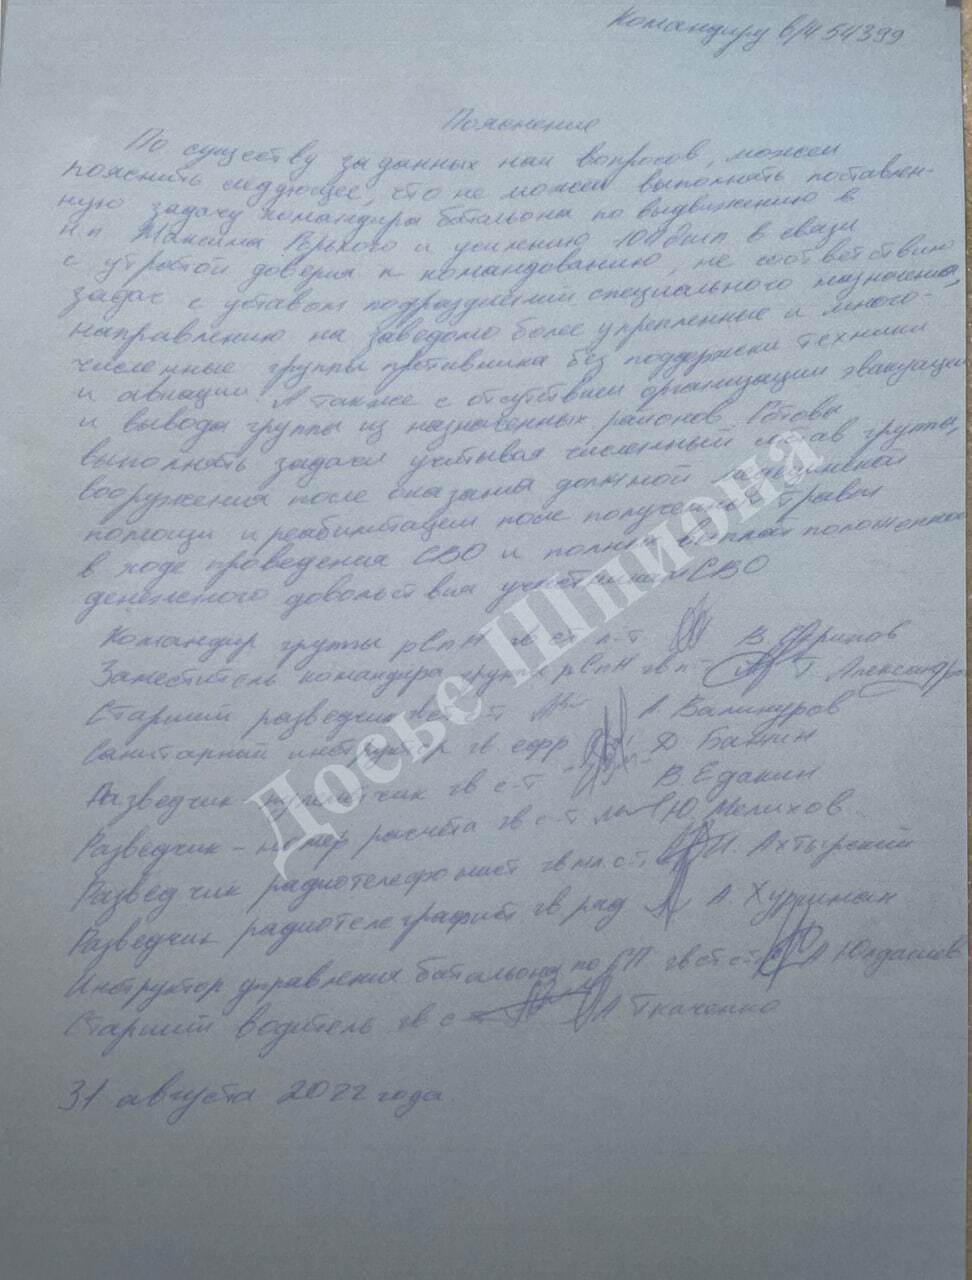 Командиру в/ч 54399
Пояснение
По существу заданных нам вопросов, можем
пояснить следующее, что не можем выполнять поставлен-
ную задачу командира батальона по выдвижению в
н.п. Максима Горького и усилению в связи
с утратой доверия к командованию, не соответствию
задач с уставом подразделений специального назначения,
направлению на заведомо более укрепленные и много-
численные группы противника без поддержки техники
и авиации. А также с отсутствием организации эвакуации
и вывода группы из назначенных районов. Готовы
выполнять задачи учитывая численный состав группы,
вооружения после оказания должной медицинской
помощи и реабилитации после полученных травм
в ходе проведения СВО и полных выплат положенного
денежного довольствия участникам СВО
Командир группы рСпН гв ст. л-т В.
Заместитель командира группы рСпН гв п- Т. Александр
Старший разведчик гв с-т А.
Санитарный инструктор гв ефр Д.
Разведчик-пулемётчик гв с-т В. Едакин
Разведчик - номер расчета гв с-т Ю. Мелихов
Разведчик радиотелефонист гв мл с-т И. Ахтырский
Разведчик радиотелеграфист гв ряд А.
Инструктор управления батальона по гв ст с-т А Юлдашев
Старший водитель гв с А Ткаченко
31 августа 2022 года.
Досье Шпиона